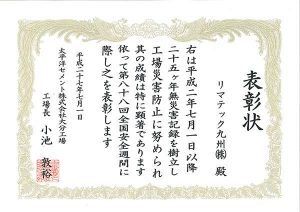 表彰状
リマテック九州㈱ 殿
右は平成二年七月一日以降
二十五ヶ年無災害記録を樹立し
工場災害防止に努められ
其の成績は特に顕著であります
依って第八十八回全国安全週間に
際し之を表彰します
平成二十七年七月一日
太平洋セメント株式会社大分工場
工場長 小池 敦裕